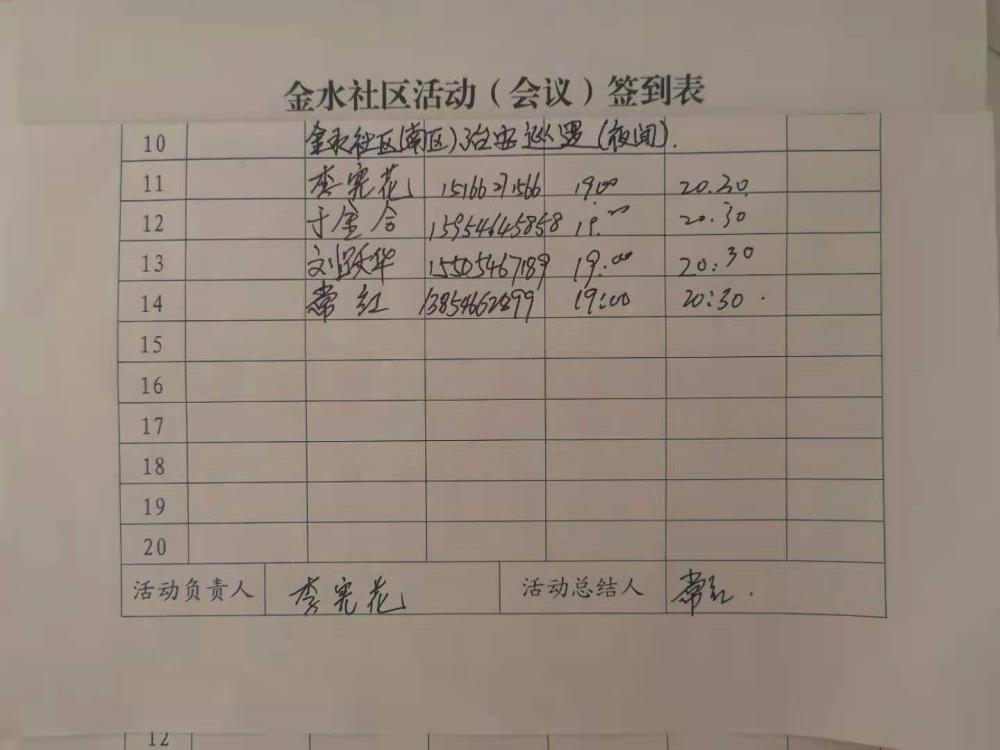 金水社区活动（会议）签到表
10 金水社区(南区)治安巡逻(夜间).
11 李宪花 15166271566 19:00 20.30
12 于金合 13954645858 19:00 20.30
13 刘跃华 15505467189 19:00 20:30
14 常红 19:00 20:30.
15
16
17
18
19
20
活动负责人 李宪花 活动总结人 常红.
12